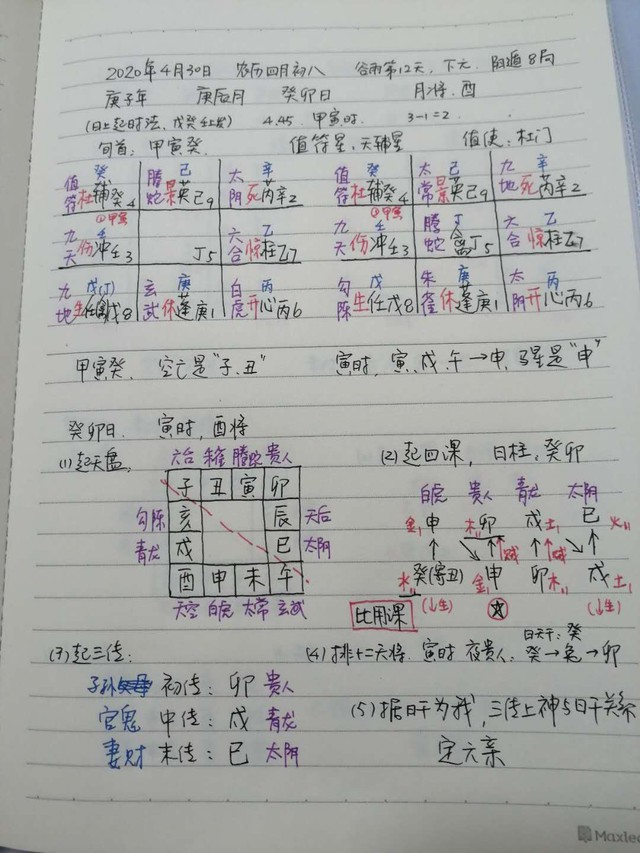 2020年4月30日 农历四月初八 谷雨第12天,下元.阴遁8局
庚子年 庚辰月 癸卯日 月将:酉
(日上起时法,戊癸壬上发) 4.45. 甲寅时. 3-1=2.
旬首:甲寅癸. 值符星:天辅星 值使:杜门
值 癸 腾 己 太 辛 值 癸 太 己 九 辛
符杜辅癸4 蛇景英己9 阴死芮辛2 符杜辅癸4 常景英己9 地死芮辛2
①甲寅 ①甲寅
九 壬 六 乙 九 壬 腾 丁 六 乙
天伤冲壬3 丁5 合惊柱乙7 天伤冲壬3 蛇禽丁5 合惊柱乙7
九 戊(丁) 玄 庚 白 丙 勾 戊 朱 庚 太 丙
地生任禽戊8 武休蓬庚1 虎开心丙6 陈生任戊8 雀休蓬庚1 阴开心丙6
甲寅癸. 空亡是“子.丑” 寅时,寅.戌.午→申,马星是“申”
癸卯日. 寅时,酉将
(1)起天盘. 六合 朱雀 腾蛇 贵人 (2)起四课, 日柱:癸卯
子 丑 寅 卯 白虎 贵人 青龙 太阴
勾陈 亥 辰 天后 金申 木卯 戌土 巳火
青龙 戌 巳 太阴 贼 贼
酉 申 未 午 水癸(寄丑) 金申 卯木 戌土
天空 白虎 太常 玄武 比用课 (↓生) (↓生)
(3)起三传: (4)排十二天将. 寅时 夜贵人: 日天干:癸 癸→兔→卯
子孙 初传:卯 贵人
官鬼 中传:戌 青龙 (5)据日干为我,三传上神与日干关系
妻财 末传:巳 太阴 定六亲